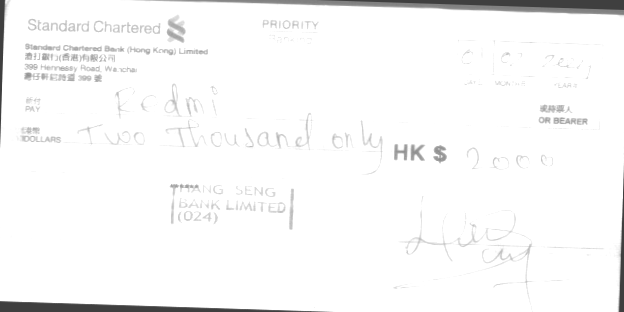 Standard Chartered
PRIORITY
Standard Chartered Bank (Hong Kong) Limited
渣打銀行(香港)有限公司
399 Hennessy Road, Wanchai
灣仔軒尼詩道 399 號
祈付
PAY Redmi
或持票人
OR BEARER
港幣
DOLLARS Two Thousand only HK $ 2000
HANG SENG
BANK LIMITED
(024)